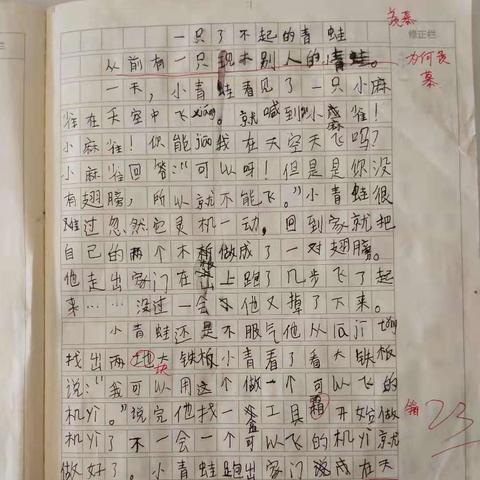 一只了不起的青蛙
羡慕
修正栏
从前有一只现木别人的青蛙。
为何羡慕
一天,小青蛙看见了一只小麻
雀在天空中飞xiáng。就喊到小麻雀!
小麻雀!你能jiāo我在天空天飞吗?
小麻雀回答:“可以呀!但是是你没
有翅膀,所以就不能飞。”小青蛙很
难过忽然它灵机一动,回到家就把
自己的两个木板做成了一对翅膀。
他走出家门在山上跑了几步飞了起
来……没过一会他又掉了下来。
小青蛙还是不服气他从lājītǒng
找出两块大铁板小青看了看大铁板
说:“我可以用这个做一个可以飞的
机yì。”说完他找一盒工具 开始做
机yì了不一会一个可以飞的机yì就
做好了。小青蛙跑出家门 在天
23